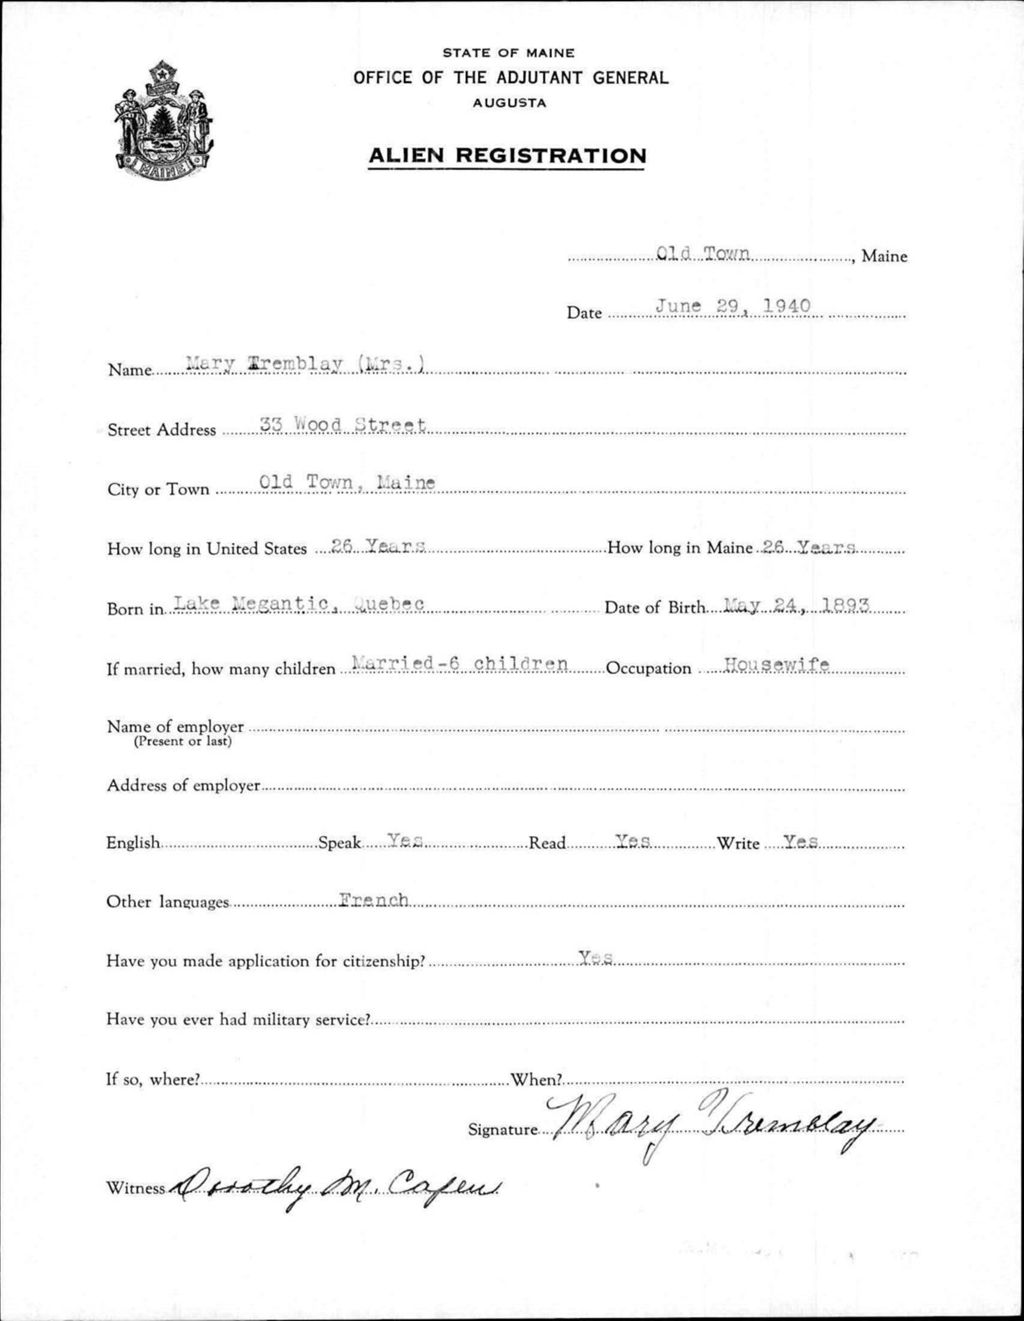 STATE OF MAINE
OFFICE OF THE ADJUTANT GENERAL
AUGUSTA
ALIEN REGISTRATION
MAINE
Old Town, Maine
Date June 29, 1940
Name Mary Tremblay (Mrs.)
Street Address 33 Wood Street
City or Town Old Town, Maine
How long in United States 26 Years How long in Maine 26 Years
Born in Lake Megantic, Quebec Date of Birth May 24, 1893
If married, how many children Married-6 children Occupation Housewife
Name of employer
(Present or last)
Address of employer
English Speak Yes Read Yes Write Yes
Other languages French
Have you made application for citizenship? Yes
Have you ever had military service?
If so, where? When?
Signature Mary Tremblay
Witness Dorothy M. Capen